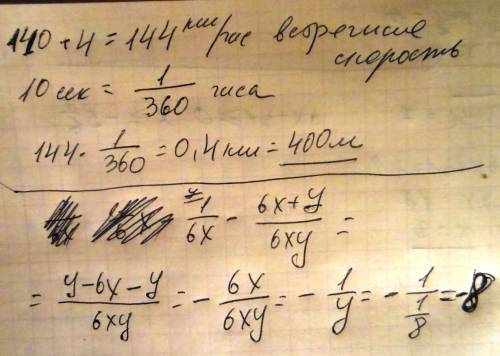 140 + 4 = 144 км/час встречная скорость
10 сек = 1/360 часа
144 · 1/360 = 0,4 км = 400м
y 1/6x - 6x+y/6xy =
= y-6x-y/6xy = - 6x/6xy = - 1/y = - 1/1/8 = -8